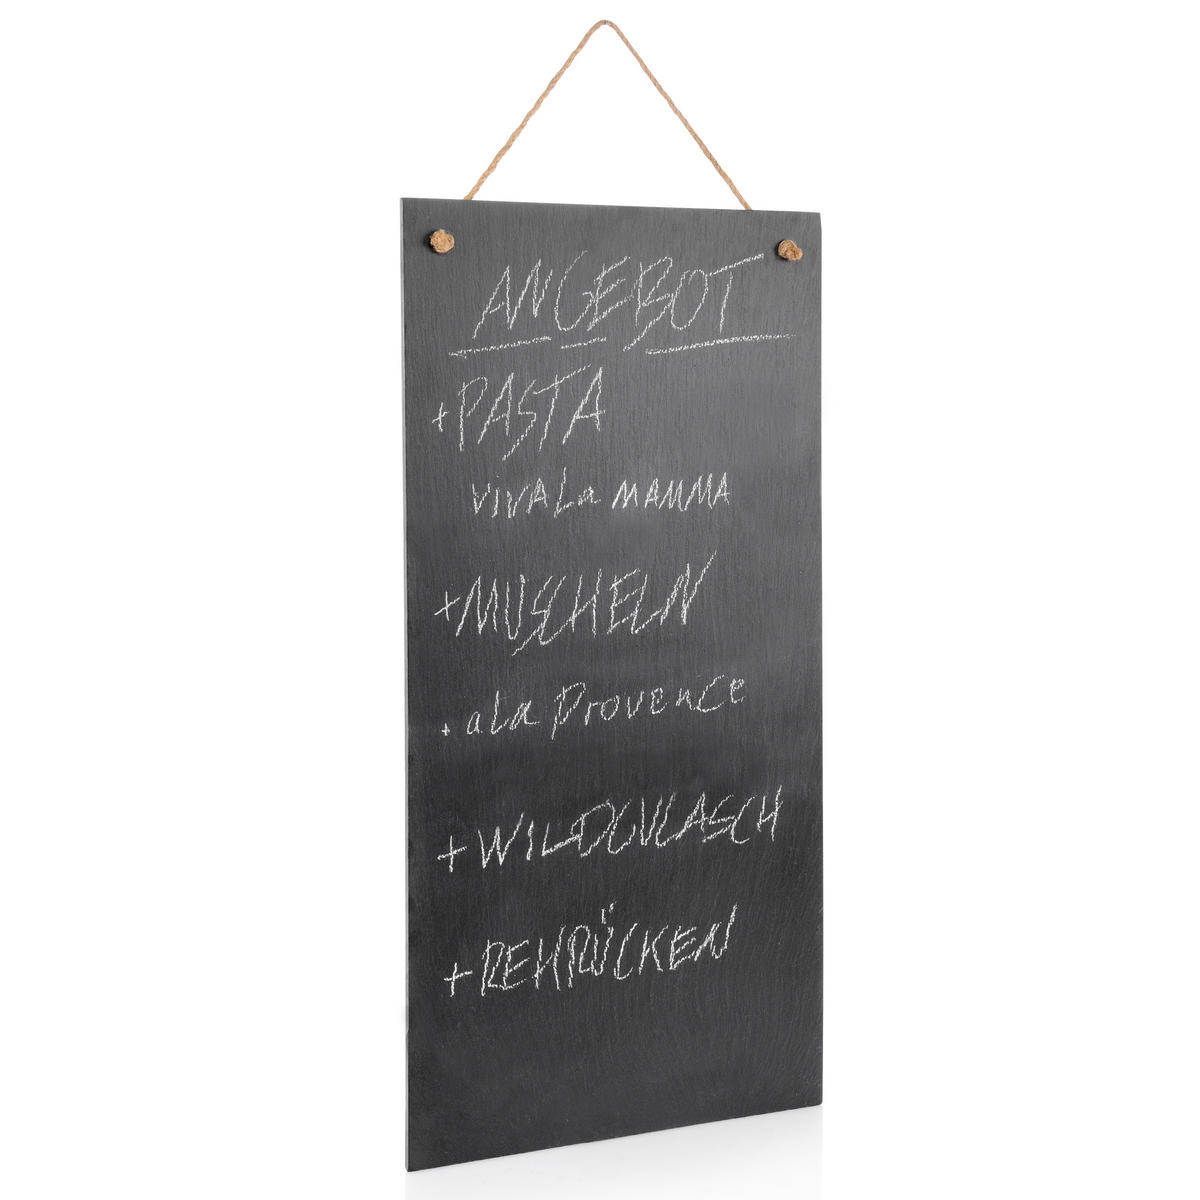 ANGEBOT
+ PASTA
VIVA La MAMMA
+ MUSCHELN
+ a la Provence
+ WILDGULASCH
+ REHRÜCKEN